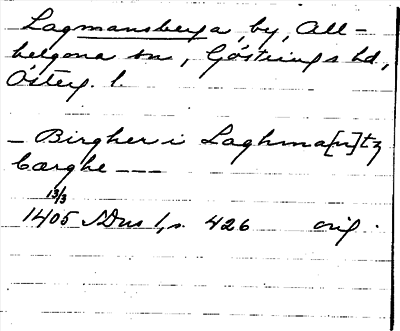 Lagmansberga, by, All-
helgona sn, Göstrings hd,
Österg. l.
– Birgher i Laghma[n]tz
bærghe ---
13/3
1405 SDns 1, s. 426 orig.